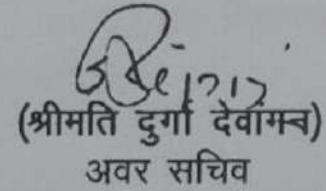 (श्रीमति दुर्गा देवांगन)
अवर सचिव